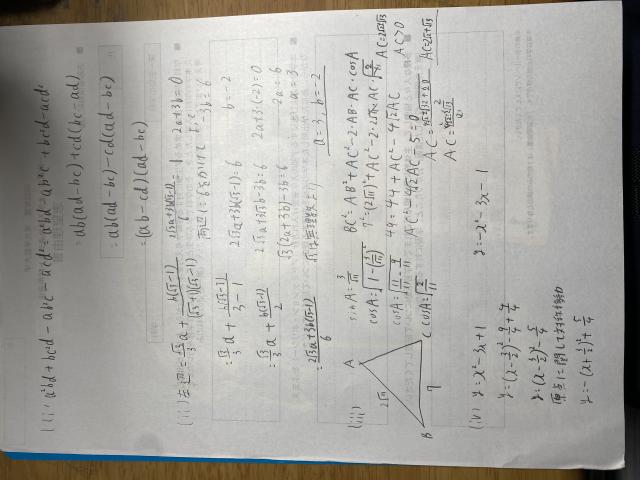 (i) a²bd+bc²d-ab²c-acd² = a²bd-ab²c+bc²d-acd²
= ab(ad-bc)+cd(bc-ad)
= ab(ad-bc)-cd(ad-bc)
= (ab-cd)(ad-bc)
(ii) 左辺 = √3/3 a + b(√3-1)/(√3+1)(√3-1)
= √3/3 a + b(√3-1)/3-1
= √3/3 a + b(√3-1)/2
= 2√3a+3b(√3-1)/6
2√3a+3b(√3-1)/6 = 1
両辺に6をかけて
2√3a+3b(√3-1)=6
2√3a+3√3b-3b=6
√3(2a+3b)-3b=6
2a+3b=0
-3b=6
b=-2
2a+3·(-2)=0
2a=6
a=3
a=3, b=-2
(iii)
A
B
C
2√11
7
sinA = 3/√11
cosA = √1-(3/√11)²
cosA = √11-9/11
cosA = √2/11
BC² = AB²+AC²-2·AB·AC·cosA
7² = (2√11)²+AC²-2·2√11·AC·√2/11
49 = 44+AC²-4√2AC
AC²-4√2AC-5=0
AC>0
(iv) y=x²-3x+1
y=(x-3/2)²-9/4+4/4
y=(x-3/2)²-5/4
原点に関して対称移動
y=-(x+3/2)²+5/4
y=-x²-3x-1